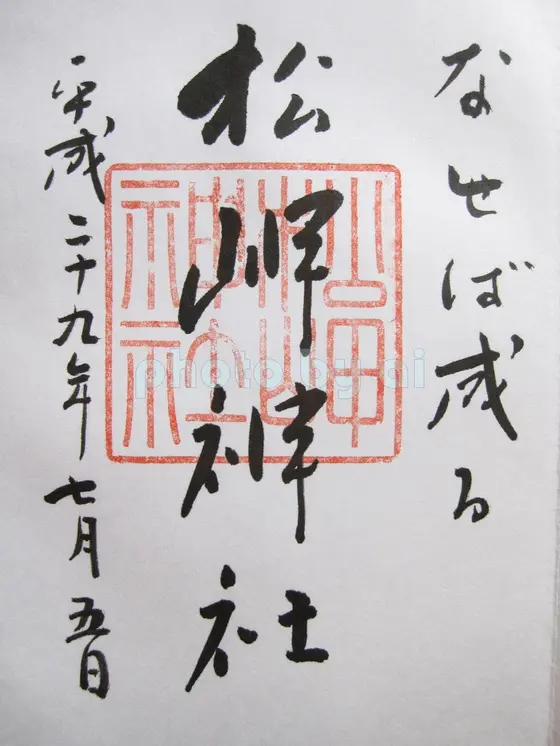 なせば成る
松岬神社
平成二十九年七月五日
松岬神社
photo by ai